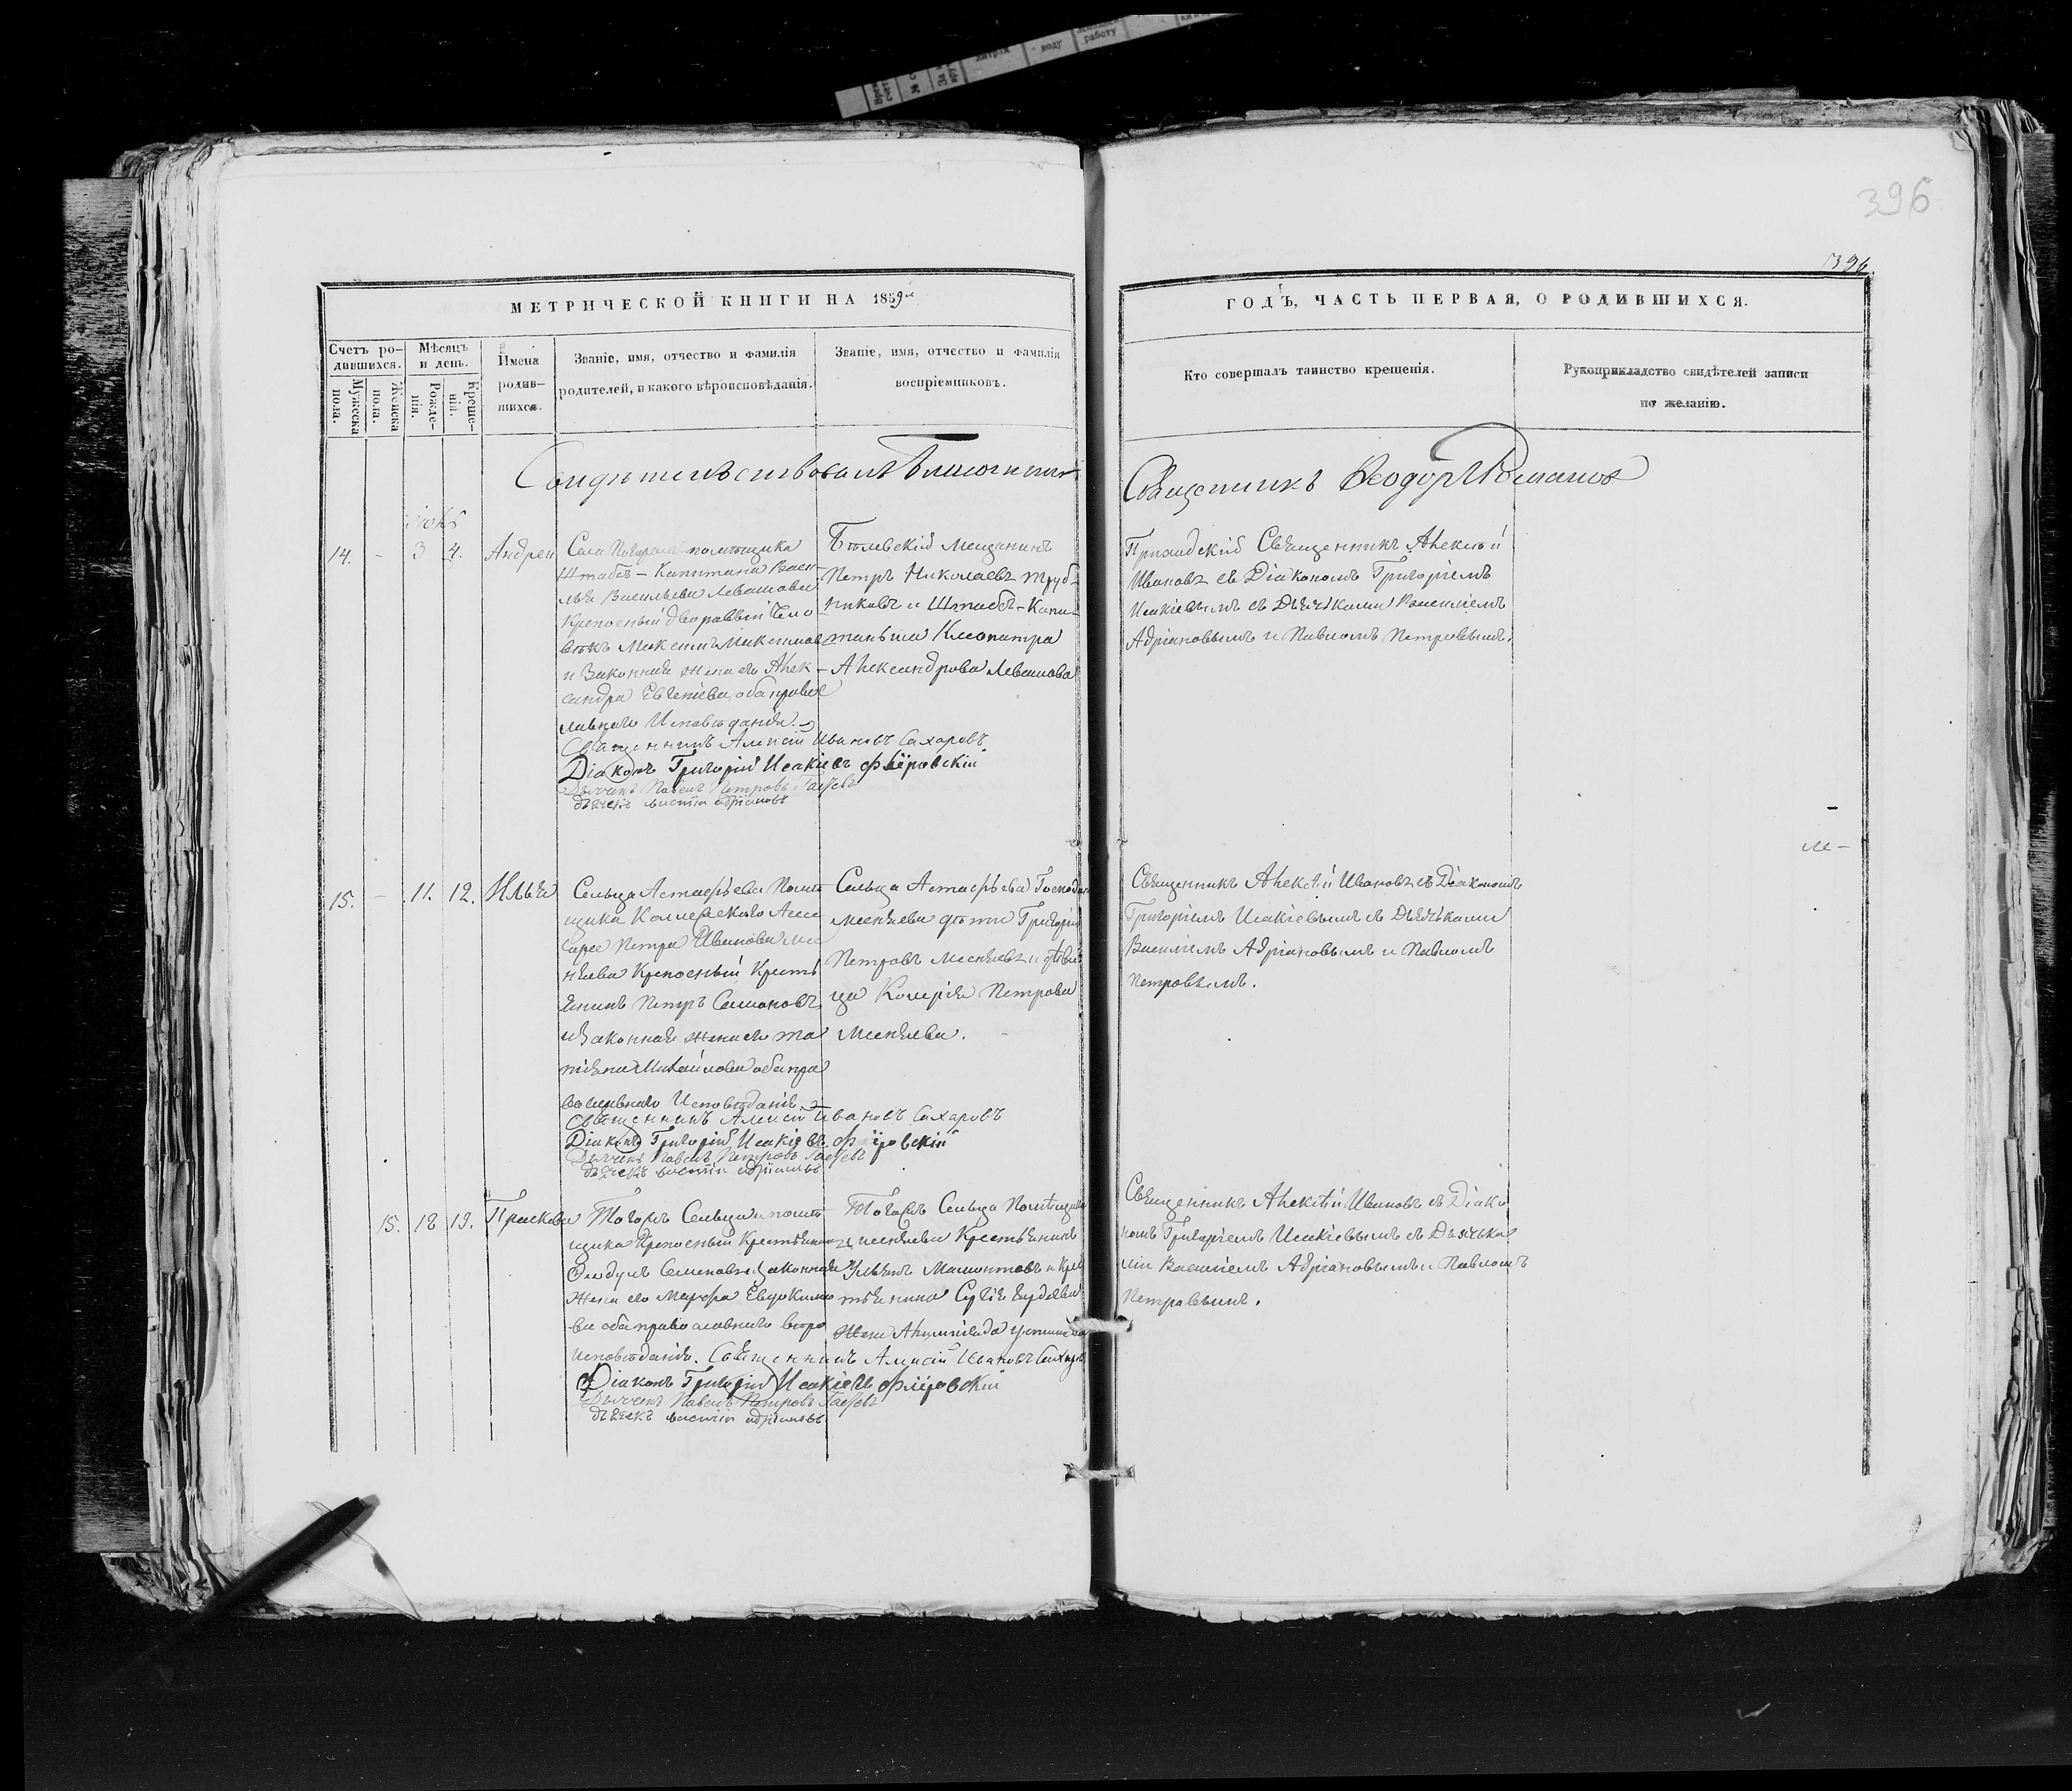 396
396.
МЕТРИЧЕСКОЙ КНИГИ НА 1859
ГОДЪ, ЧАСТЬ ПЕРВАЯ, О РОДИВШИХСЯ.
Счетъ ро-
дившихся.
Мужеска пола.
Женска пола.
Мѣсяцъ
и день.
Рожде-
нія.
Креще-
нія.
Имена
родив-
шихся.
Званіе, имя, отчество и фамилія
родителей, и какого вѣроисповѣданія.
Званіе, имя, отчество и фамилія
воспріемниковъ.
Кто совершалъ таинство крещенія.
Рукоприкладство свидѣтелей записи
по желанію.
Свидѣтельствовалъ
Священникъ Ѳеодоръ Романов
14. - 3 4. Андрей
Села помѣщика
Штабсъ-Капитана Васи-
лья Васильева Левашова
Крепосный дворовый Чело
вѣкъ Максимъ Максимов
и Законная жена его Алек-
сандра Евгеніева, оба право
славнаго Исповѣданія.
Священникъ Алексій Ивановъ Сахаровъ
Діаконъ Григорій Исакіевъ Флёровскій
Дьячекъ Павелъ Петровъ
дьячекъ василіи адріановъ
Бѣлевскій Мещанинъ
Петръ Николаевъ Труб-
никовъ и Штабсъ-Капи-
таньша Клеопатра
Александрова Левашова
Приходскій Священникъ Алексѣй
Ивановъ съ Діакономъ Григоріемъ
Исакіевымъ съ Дьячьками Василіемъ
Адріановымъ и Павломъ Петровымъ.
15. - 11. 12. Илья
Сельца Астафьева Помѣ
щика Коллежскаго Асе
сора Петра Иванова
Крепосный Кресть
янинъ Петръ Симоновъ
и Законная жена его Та
тьяна Михайлова оба пра
вославнаго Исповѣданія.
Священникъ Алексій Ивановъ Сахаровъ
Діаконъ Григорій Исакіевъ Флёровскій
Дьячекъ Павелъ Петровъ
дьячекъ василіи адріановъ
Сельца Астафьева Господина
дѣти Григорій
Петровъ и дѣви
ца Петрова
Священникъ Алексѣй Ивановъ съ Діакономъ
Григоріемъ Исакіевымъ съ Дьячьками
Василіемъ Адріановымъ и Павломъ
Петровымъ.
15. 18 19. Праскева
Тогожъ Сельца и помѣ
щика Крепосный Крестьянинъ
Семеновъ и Законная
жена его Марфа Евдокимо
ва оба православнаго
Исповѣданія. Священникъ Алексій Ивановъ Сахаровъ
Діаконъ Григорій Исакіевъ Флёровскій
Дьячекъ Павелъ Петровъ
дьячекъ василіи адріановъ
Тогожъ Сельца Помѣщика
Крестьянинъ
Ульянъ Мамонтовъ и Кре
стьянина
Жена
Священникъ Алексѣй Ивановъ съ Діако
номъ Григоріемъ Исакіевымъ съ Дьячька
ми Василіемъ Адріановымъ и Павломъ
Петровымъ.